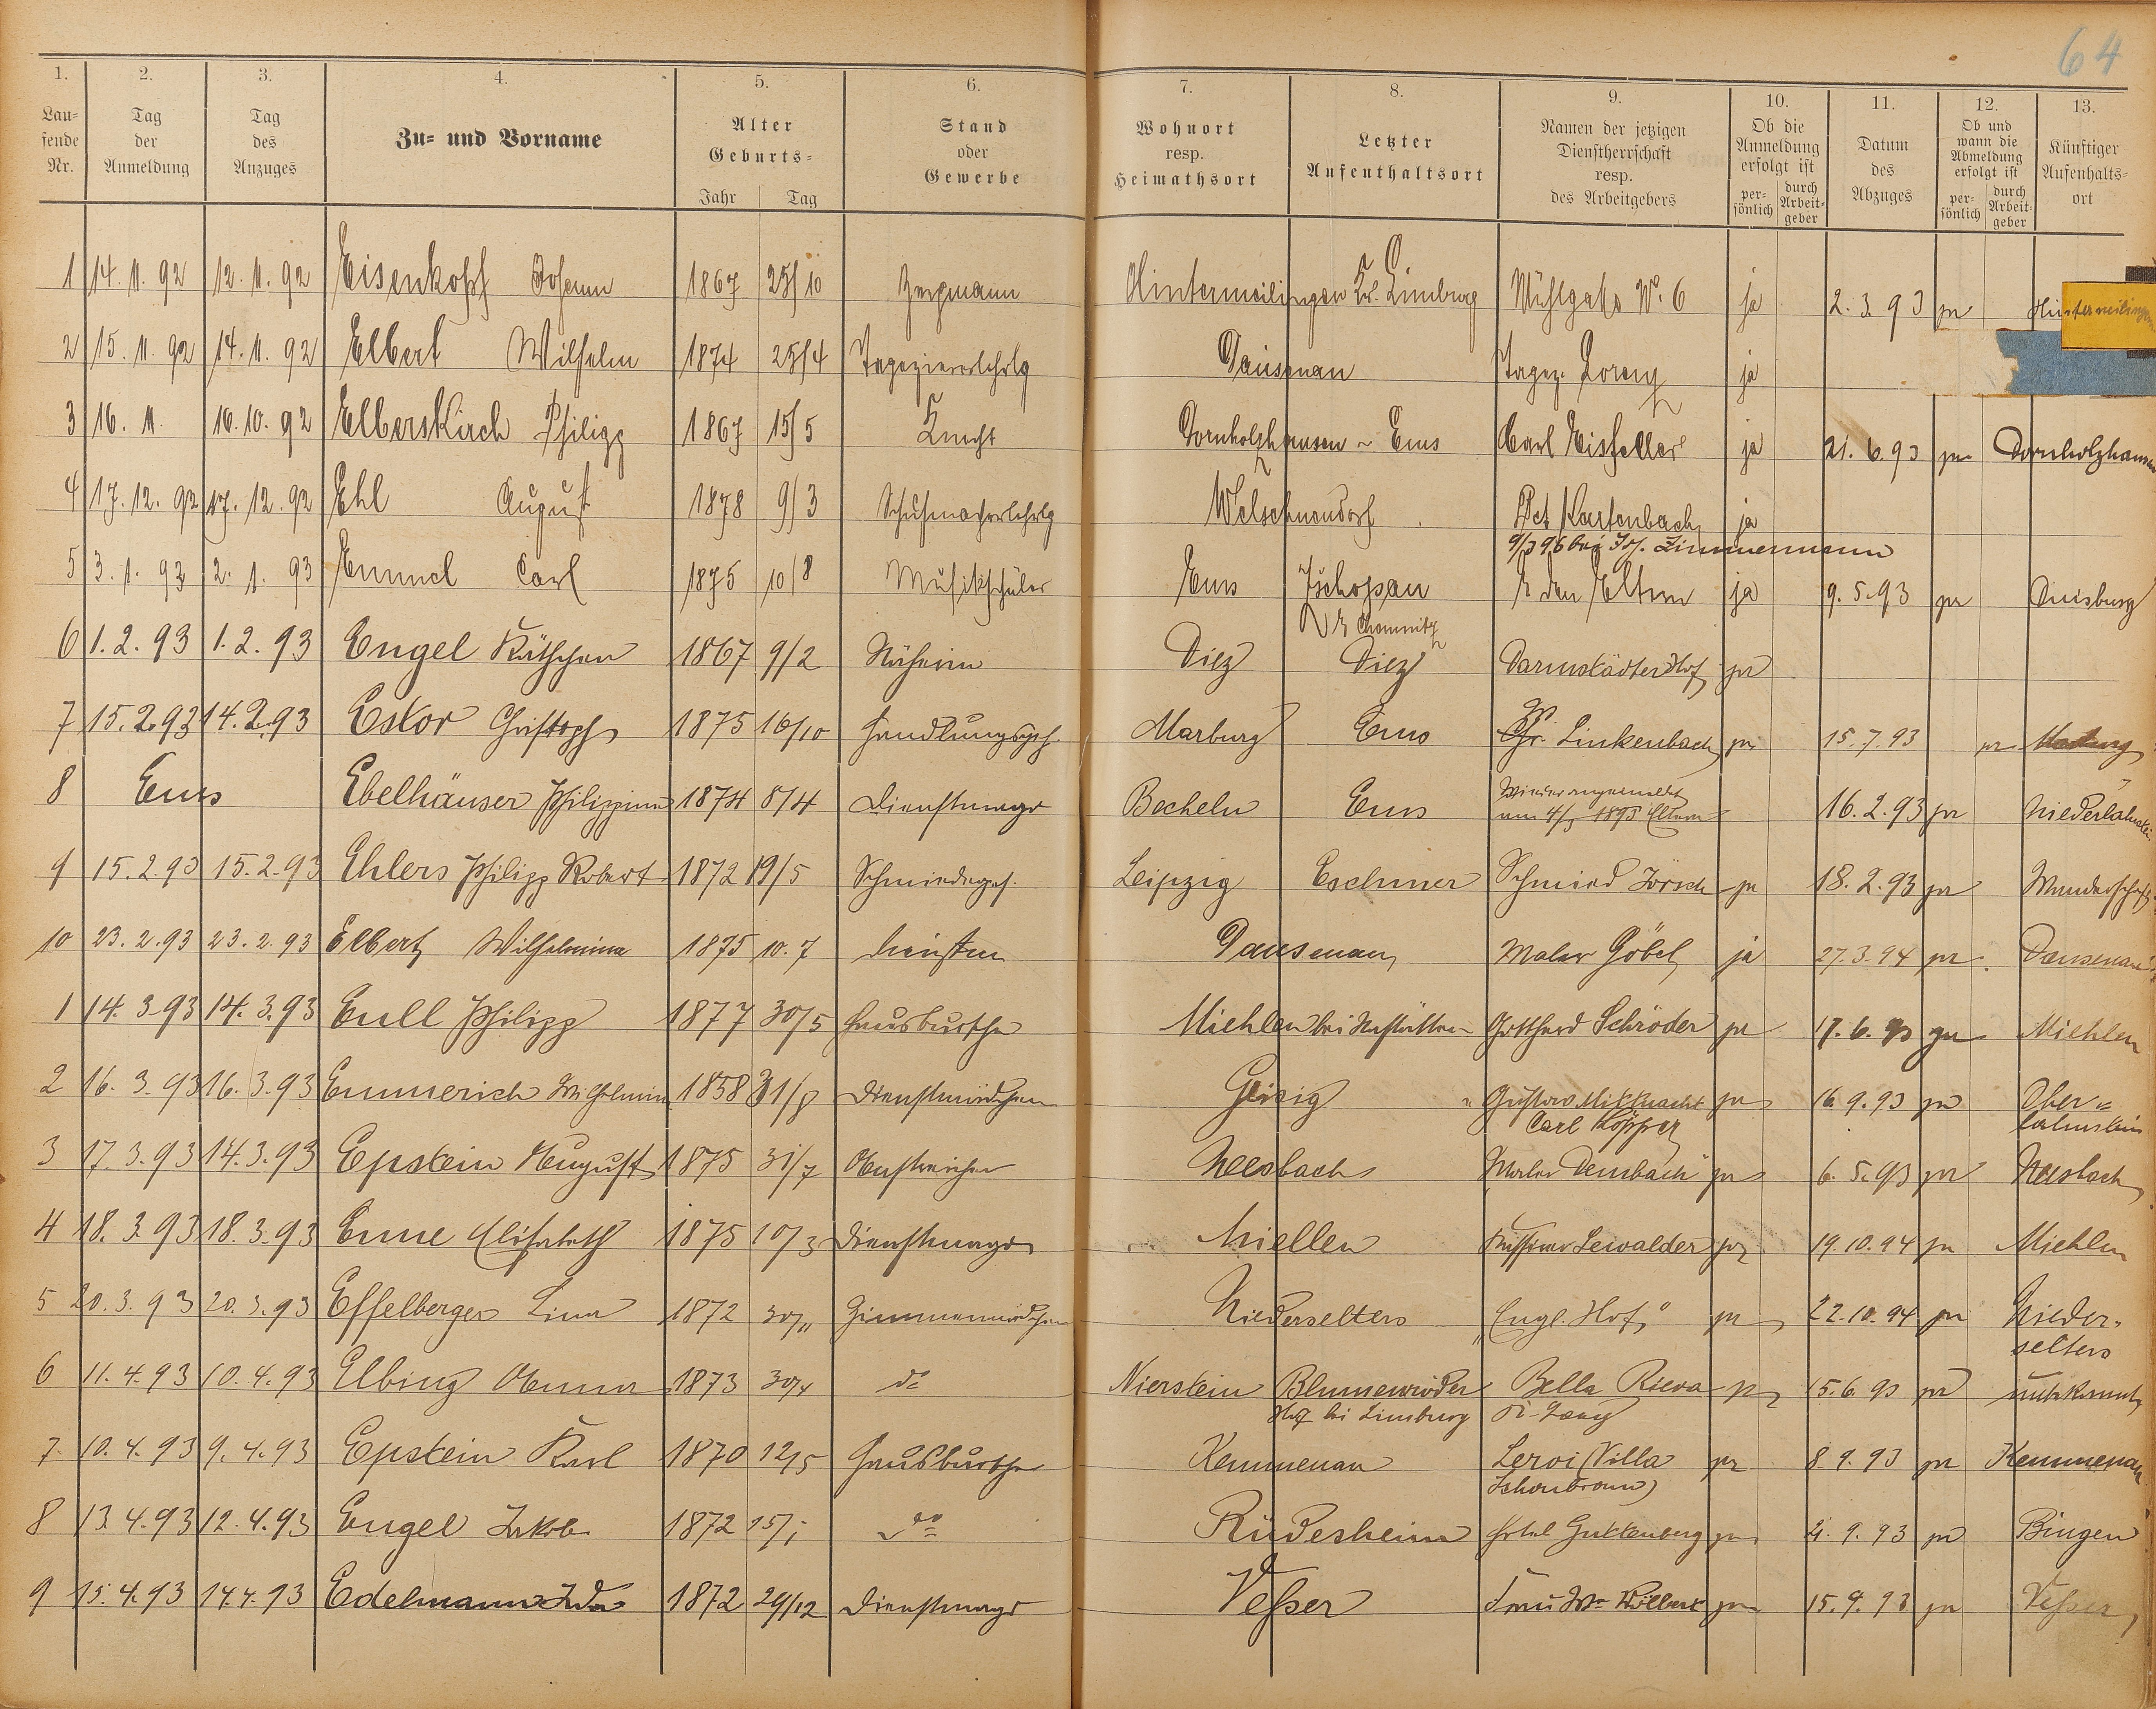 64
1. 2. 3. 4. 5. 6. 7. 8. 9. 10. 11. 12. 13.
Lau-
fende
Nr.
Tag
der
Anmeldung
Tag
des
Anzuges
Zu- und Vorname
Alter
Geburts-
Jahr Tag
Stand
oder
Gewerbe
Wohnort
resp.
Heimathsort
Letzter
Aufenthaltsort
Namen der jetzigen
Dienstherrschaft
resp.
des Arbeitgebers
Ob die
Anmeldung
erfolgt ist
per-
sönlich
durch
Arbeit-
geber
Datum
des
Abzuges
Ob und
wann die
Abmeldung
erfolgt ist
per-
sönlich
durch
Arbeit-
geber
Künftiger
Aufenthalts-
ort
1 14. 11. 92 12. 11. 92 Eisenkopf Johann 1867 25/10 Bergmann Hintermeilingen Kr. Limburg Mühlgasse No. 6 ja 2. 3. 93 ja Hintermeilingen
2 15. 11. 92 14. 11. 92 Elbert Wilhelm 1874 25/4 Tapeziererlehrlg Dausenau Tapez. Lorenz ja
3 16. 11. 16. 10. 92 Elberskirch Philipp 1867 15/5 Knecht Dornholzhausen Ems Carl Eisfeller ja 21. 6. 93 ja Dornholzhausen
4 17. 12. 92 17. 12. 92 Ehl August 1878 9/3 Schuhmacherlehrlg Welschneudorf Pet Kastenbach ja
9/3 96 bei Zimmermann
5 3. 1. 93 2. 1. 93 Emmel Carl 1875 10/8 Musikschüler Ems Zschopau den Eltern ja 9. 5. 93 ja Duisburg
Chemnitz
6 1. 2. 93 1. 2. 93 Engel Käthchen 1867 9/2 Näherin Diez Diez Darmstädter Hof ja
7 15. 2. 93 14. 2. 93 Eskor Christoph 1875 16/10 Handlungsgeh. Marburg Ems Linkenbach ja 15. 7. 93 ja Marburg
8 Ems Ebelhäuser Philippine 1874 8/4 Dienstmagd Becheln Ems Wieder angemeldet
am 4/3 1893 Eltern 16. 2. 93 ja Niederlahnstein
9 15. 2. 93 15. 2. 93 Ehlers Philipp Robert 1872 19/5 Schmiedeges. Leipzig Eschmer Schmied Jörsch ja 18. 2. 93 ja Wanderschaft
10 23. 2. 93 23. 2. 93 Elbert Wilhelmina 1875 10. 7 Dausenau Maler Göbel ja 27. 3. 94 ja Dausenau
1 14. 3. 93 14. 3. 93 Eull Philipp 1877 30/5 Hausbursche Miehlen bei Nastätten Gotthard Schröder ja 17. 6. 93 ja Miehlen
2 16. 3. 93 16. 3. 93 Emmerich Wilhelmine 1858 31/8 Dienstmädchen Geisig Gustav Mitknacht ja 16. 9. 93 ja Ober-
Carl Köpper lahnstein
3 17. 3. 93 14. 3. 93 Epstein August 1875 31/7 Anstreicher Neesbach Maler Dembach ja 6. 5. 93 ja Neesbach
4 18. 3. 93 18. 3. 93 Enne Elisabeth 1875 10/3 Dienstmagd Miellen Lewalder ja 19. 10. 94 ja Miehlen
5 20. 3. 93 20. 3. 93 Effelberger Lina 1872 30/11 Zimmermädchen Niederselters "Engl. Hof" ja 22. 10. 94 ja Nieder-
selters
6 11. 4. 93 10. 4. 93 Elbing Anna 1873 30/4 do Nierstein Blumenröder Bella Rieva ja 15. 6. 93 ja unbekannt
Hof bei Limburg
7. 10. 4. 93 9. 4. 93 Epstein Karl 1870 12/5 Hausbursche Kemmenau Leroi (Villa ja 8 9. 93 ja Kemmenau
Schönbronn)
8 13. 4. 93 12. 4. 93 Engel Jakob 1872 15/1 do Rüdesheim Hotel Guttenberg ja 21. 9. 93 ja Bingen
9 15. 4. 93 14. 4. 93 Edelmann Ida 1872 29/12 Dienstmagd Vesser Frau Ww Willbert ja 15. 9. 93 ja Vesser